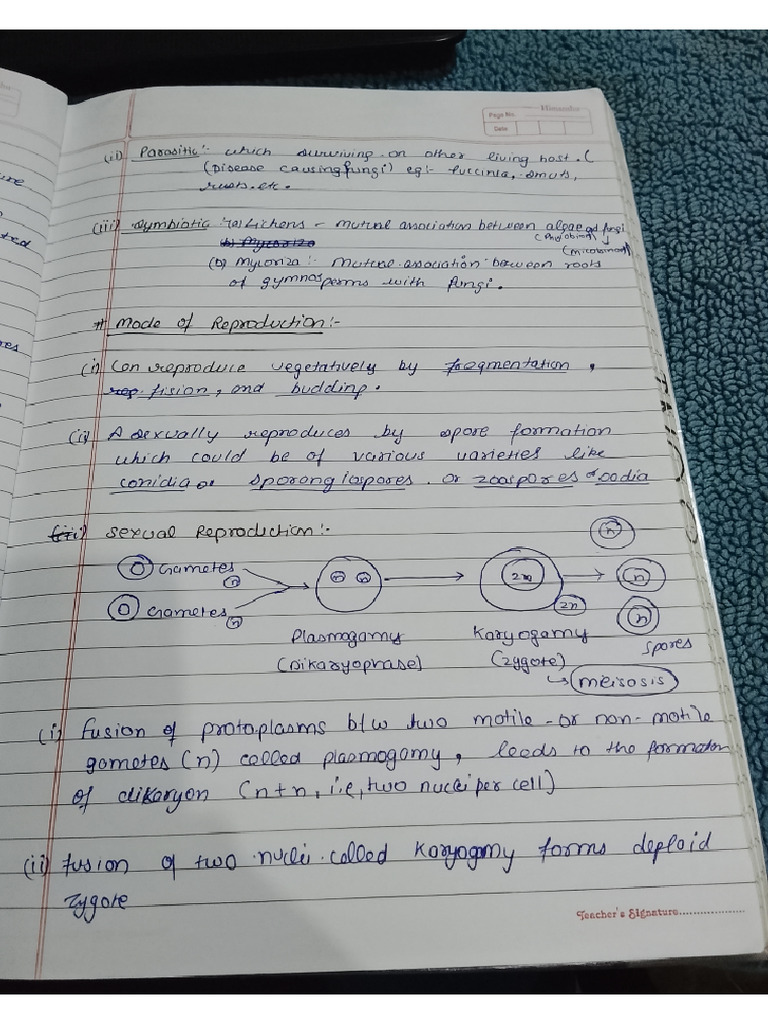 Page No.
Date
(ii) Parasitic :- which surviving on other living host. (
(Disease causing fungi) eg:- Puccinia, smuts,
rusts. etc.
(iii) Symbiotic :- (a) Lichens - mutual association between algae and fungi
(Phycobiont) (Micobiont)
(b) Mycorrza :- Mutual association between roots
of gymnosperms with fungi.
# Mode of Reproduction:-
(i) Can reproduce vegetatively by fragmentation,
fision, and budding.
(ii) Asexually reproduces by spore formation
which could be of various varieties like
conidia or sporangiospores. or zoospores or oodia
(iii) Sexual Reproduction:-
Gametes (n)
Gametes (n)
n n
2n
2n
n
n
n
Plasmogamy
(Dikaryophase)
Karyogamy
(zygote)
spores
meisosis
(i) Fusion of protoplasms b/w two motile or non-motile
gametes (n) called plasmogamy, leeds to the formation
of dikaryon (n+n, i.e, two nuclei per cell)
(ii) Fusion of two nucli called Karyogamy forms deploid
zygote
Teacher's Signature....................